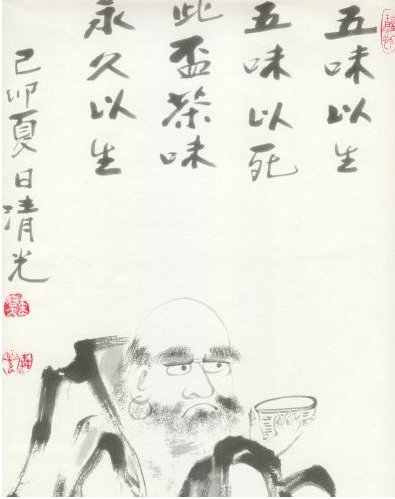 五味以生
五味以死
此盃茶味
永久以生
己卯夏日清光